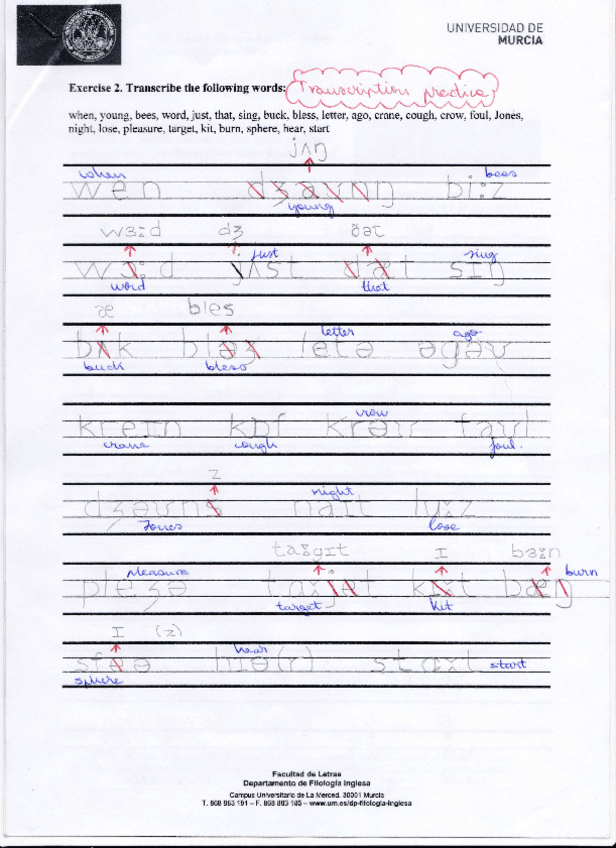 UNIVERSIDAD DE
MURCIA
Exercise 2. Transcribe the following words: Transcription practice
when, young, bees, word, just, that, sing, buck, bless, letter, ago, crane, cough, crow, foul, Jones,
night, lose, pleasure, target, kit, burn, sphere, hear, start
jʌŋ
when bees
wen bi:z
young
wɜ:d dʒ ðət
just sing
w d ʌst d t sɪŋ
word that
æ bles
letter ago
b k bl letə əgəʊ
buck bless
crow
kreɪn kɒf krəʊ faʊl
crane cough foul.
z
night
dʒəʊn naɪt lu:z
Jones lose
ta:gɪt ɪ bɜ:n
pleasure burn
pleʒə ta: t k t b
target kit
ɪ (z)
hear
sf ə hɪə(r) sta:t start
sphere
Facultad de Letras
Departamento de Filología Inglesa
Campus Universitario de La Merced. 30001 Murcia
T. 868 883 191 – F. 868 883 185 – www.um.es/dp-filologia-inglesa